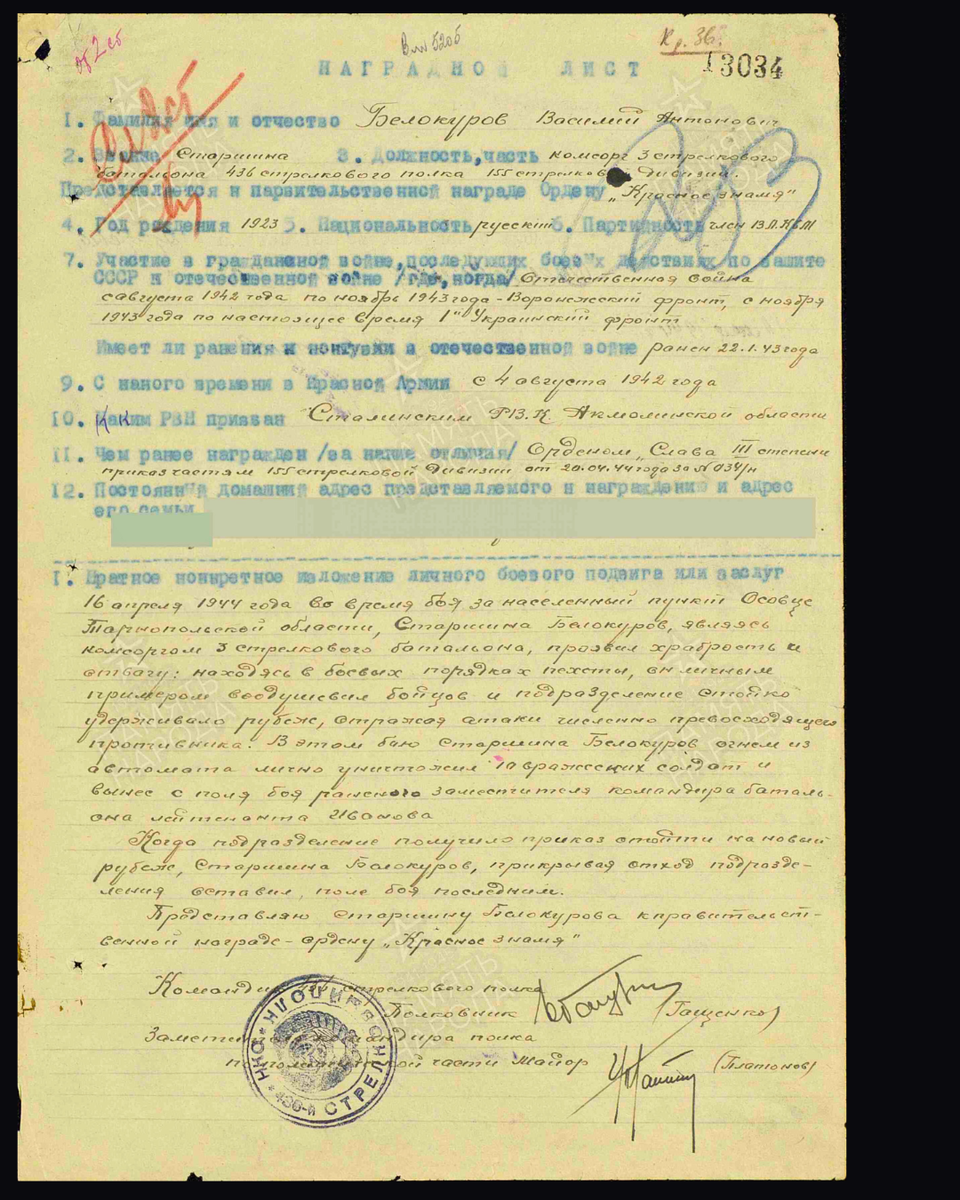 об 2 сб
Вл 5205
К р. 36.
НАГРАДНОЙ ЛИСТ
13034
1. Фамилия имя и отчество Белокуров Василий Антонович
2. Звание Старшина 3. Должность, часть комсорг 3 стрелкового
батальона 436 стрелкового полка 155 стрелковой дивизии.
Представляется к правительственной награде Ордену „Красное знамя"
4. Год рождения 1923 5. Национальность русский 6. Партийность член ВЛКСМ
7. Участие в гражданской войне, последующих боевых действиях по защите
СССР и отечественной войне /где, когда/ Отечественная война
с августа 1942 года по ноябрь 1943 года - Воронежский фронт, с ноября
1943 года по настоящее время 1й Украинский фронт
Имеет ли ранения и контузии в отечественной войне ранен 22.1.43 года
9. С какого времени в Красной Армии с 4 августа 1942 года
10. Каким РВК призван Сталинским РВК Акмолинской области
11. Чем ранее награжден /за какие отличия/ Орденом „Слава III степени
приказ частям 155 стрелковой дивизии от 20.04.44 года за № 034/н
12. Постоянный домашний адрес представляемого к награждению и адрес
его семьи
1. Краткое конкретное изложение личного боевого подвига или заслуг
16 апреля 1944 года во время боя за населенный пункт Осовце
Тарнопольской области, Старшина Белокуров, являясь
комсоргом 3 стрелкового батальона, проявил храбрость и
отвагу: находясь в боевых порядках пехоты, он личным
примером воодушевил бойцов и подразделение стойко
удерживало рубеж, отражая атаки численно превосходящего
противника. В этом бою Старшина Белокуров огнем из
автомата лично уничтожил 10 вражеских солдат и
вынес с поля боя раненого заместителя командира баталь-
она лейтенанта Иванова
Когда подразделение получило приказ отойти на новый
рубеж, Старшина Белокуров, прикрывая отход подразде-
ления оставил поле боя последним.
Представляю Старшину Белокурова к правительст-
венной награде - ордену „Красное знамя"
Командир стрелкового полка
Полковник (Гащенко)
Заместитель командира полка
по политической части Майор (Платонов)
НКО * 436-й СТРЕЛКОВЫЙ
ПАМЯТЬ НАРОДА